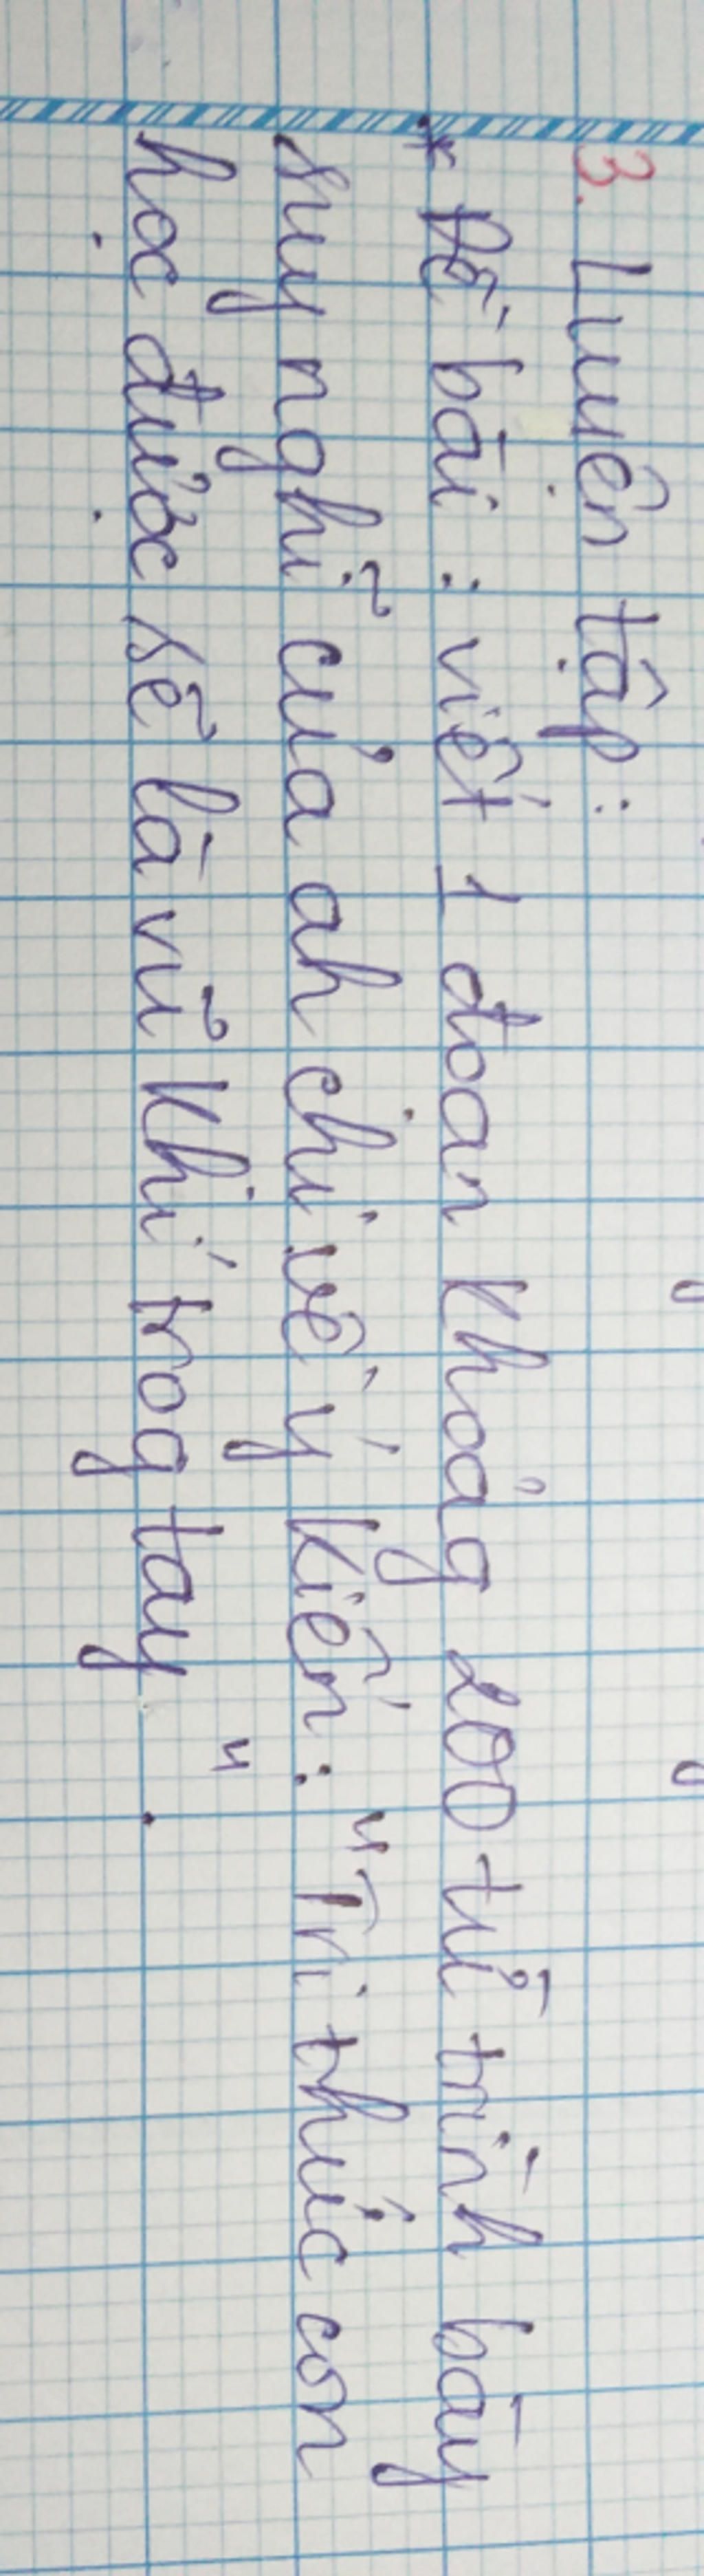 3. Luyện tập:
* Đề bài: viết 1 đoạn khoảg 200 từ trình bày
suy nghĩ của ah chị về ý kiến: "Tri thức con
học được sẽ là vũ khí trog tay".